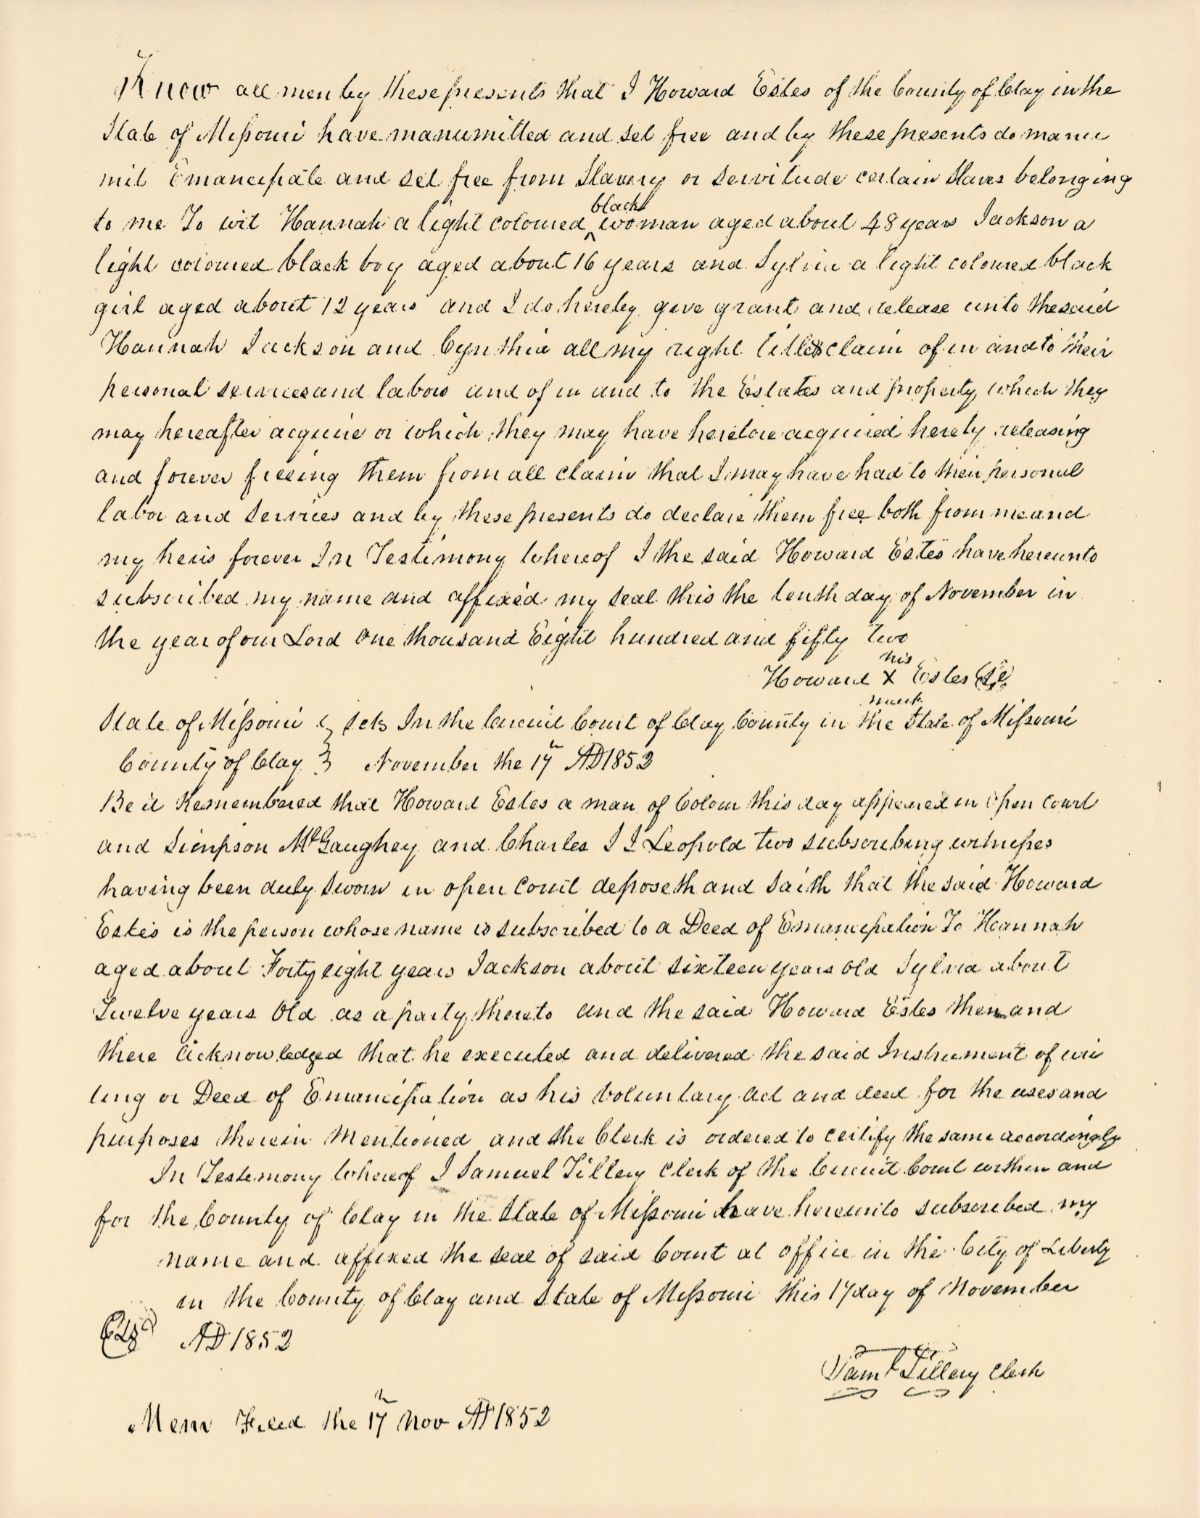 Know all men by these presents that I Howard Estes of the County of Clay in the
State of Missouri have manumitted and set free and by these presents do manu
mit Emancipate and set free from Slavery or servitude certain slaves belonging
to me To wit Hannah a light coloured black woman aged about 48 years Jackson a
light coloured black boy aged about 16 years and Sylvia a light coloured black
girl aged about 12 years and I do hereby give grant and release unto the said
Hannah Jackson and Cynthia all my right title & claim of in and to their
personal services and labors and of in and to the Estates and property which they
may hereafter acquire or which they may have heretore acquired hereby releasing
and forever freeing them from all claim that I may have had to their personal
labor and services and by these presents do declare them free both from me and
my heirs forever In Testimony Whereof I the said Howard Estes have hereunto
subscribed my name and affixed my seal this the tenth day of November in
the year of our Lord One thousand Eight hundred and fifty two
his
Howard X Estes
mark
State of Missouri } Sct In the Circuit Court of Clay County in the State of Missouri
County of Clay } November the 17th AD 1852
Be it Remembered that Howard Estes a man of Colour this day appeared in Open Court
and Simpson McGaughey and Charles J J Leopold two subscribing witnesses
having been duly Sworn in open Court deposeth and saith that the said Howard
Estes is the person whose name is subscribed to a Deed of Emancipation To Hannah
aged about Forty eight years Jackson about sixteen years old Sylvia about
Twelve years Old as a party thereto and the said Howard Estes then and
there acknowledged that he executed and delivered the said Instrument of wri
ting or Deed of Emancipation as his voluntary act and deed for the uses and
purposes therein Mentioned and the Clerk is ordered to certify the same accordingly
In Testimony Whereof I Samuel Tillery Clerk of the Circuit Court within and
for the County of Clay in the State of Missouri have hereunto subscribed my
name and affixed the seal of said Court at office in the City of Liberty
in the County of Clay and State of Missouri this 17 day of November
AD 1852
Saml Tillery Clerk
Mem Filed the 17th Nov AD 1852